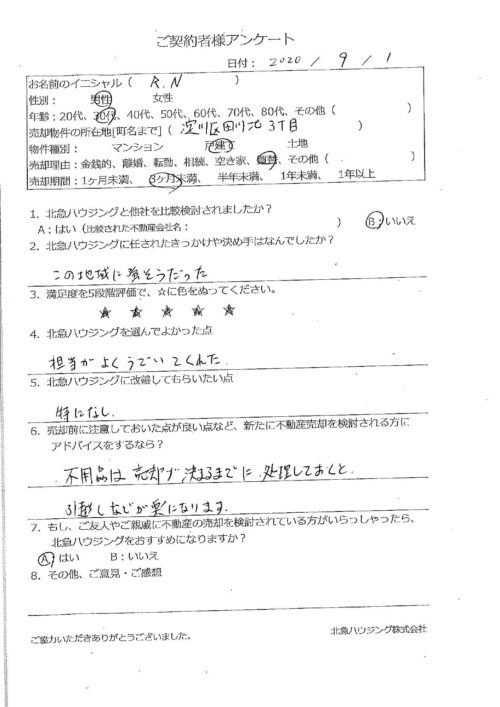 ご契約者様アンケート
日付: 2020 / 9 / 1
お名前のイニシャル ( R.N )
性別: 男性 女性
年齢:20代、30代、40代、50代、60代、70代、80代、その他 ( )
売却物件の所在地[町名まで] ( 淀川区田川北3丁目 )
物件種別: マンション 戸建て 土地
売却理由:金銭的、離婚、転勤、相続、空き家、買替、その他 ( )
売却期間:1ヶ月未満、 3ヶ月未満、 半年未満、 1年未満、 1年以上
1. 北急ハウジングと他社を比較検討されましたか?
A:はい (比較された不動産会社名: ) B:いいえ
2. 北急ハウジングに任されたきっかけや決め手はなんでしたか?
この地域に強そうだった
3. 満足度を5段階評価で、☆に色をぬってください。
★ ★ ★ ★ ★
4. 北急ハウジングを選んでよかった点
担当がよくうごいてくれた.
5. 北急ハウジングに改善してもらいたい点
特になし.
6. 売却前に注意しておいた点が良い点など、新たに不動産売却を検討される方に
アドバイスをするなら?
不用品は売却が決まるまでに処理しておくと.
引越しなどが楽になります.
7. もし、ご友人やご親戚に不動産の売却を検討されている方がいらっしゃったら、
北急ハウジングをおすすめになりますか?
A:はい B:いいえ
8. その他、ご意見・ご感想
ご協力いただきありがとうございました。
北急ハウジング株式会社